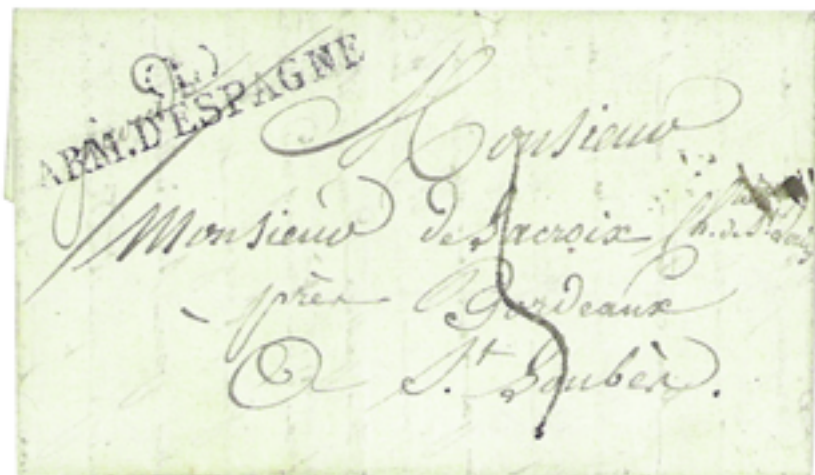 ARM. D'ESPAGNE
Monsieur
Monsieur de Lacroix Ch. de St. Louis
près Bordeaux
A St. Loubès.